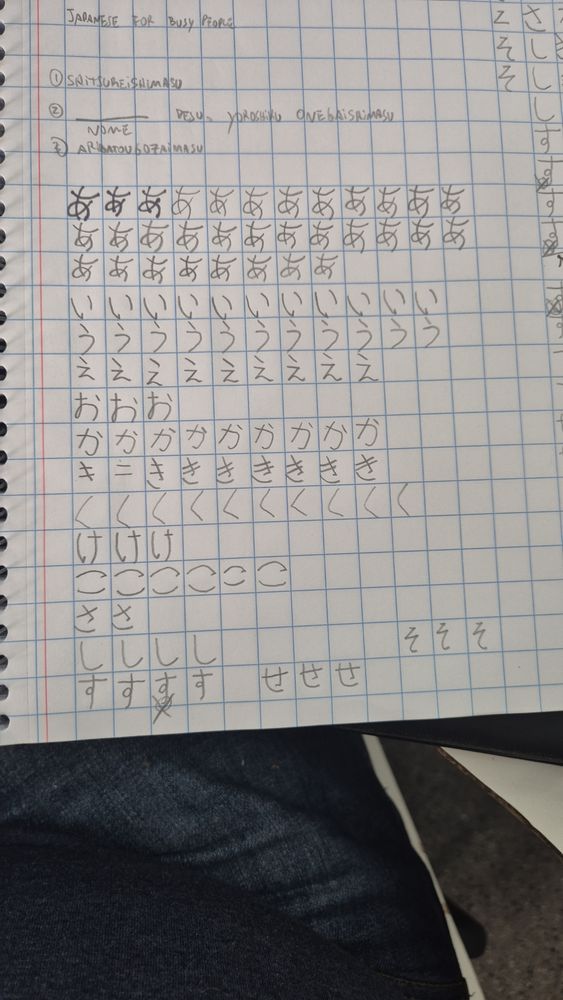 JAPANESE FOR BUSY PEOPLE
① SHITSUREiSHiMASU
② ________ DESU. YOROSHIKU ONEGAISHIMASU
NOME
③ ARIGATOU GOZAIMASU
あ あ あ あ あ あ あ あ あ あ あ
あ あ あ あ あ あ あ あ あ あ あ
あ あ あ あ あ あ あ あ
い い い い い い い い い い い
う う う う う う う う う う う
え え え え え え え え え
お お お
か か か か か か か か か
き ニ き き き き き き き
く く く く く く く く く く
け け け
こ こ こ こ こ こ
さ さ
し し し し
す す す す せ せ せ
そ そ そ
さ
し
し
し
す
そ
そ